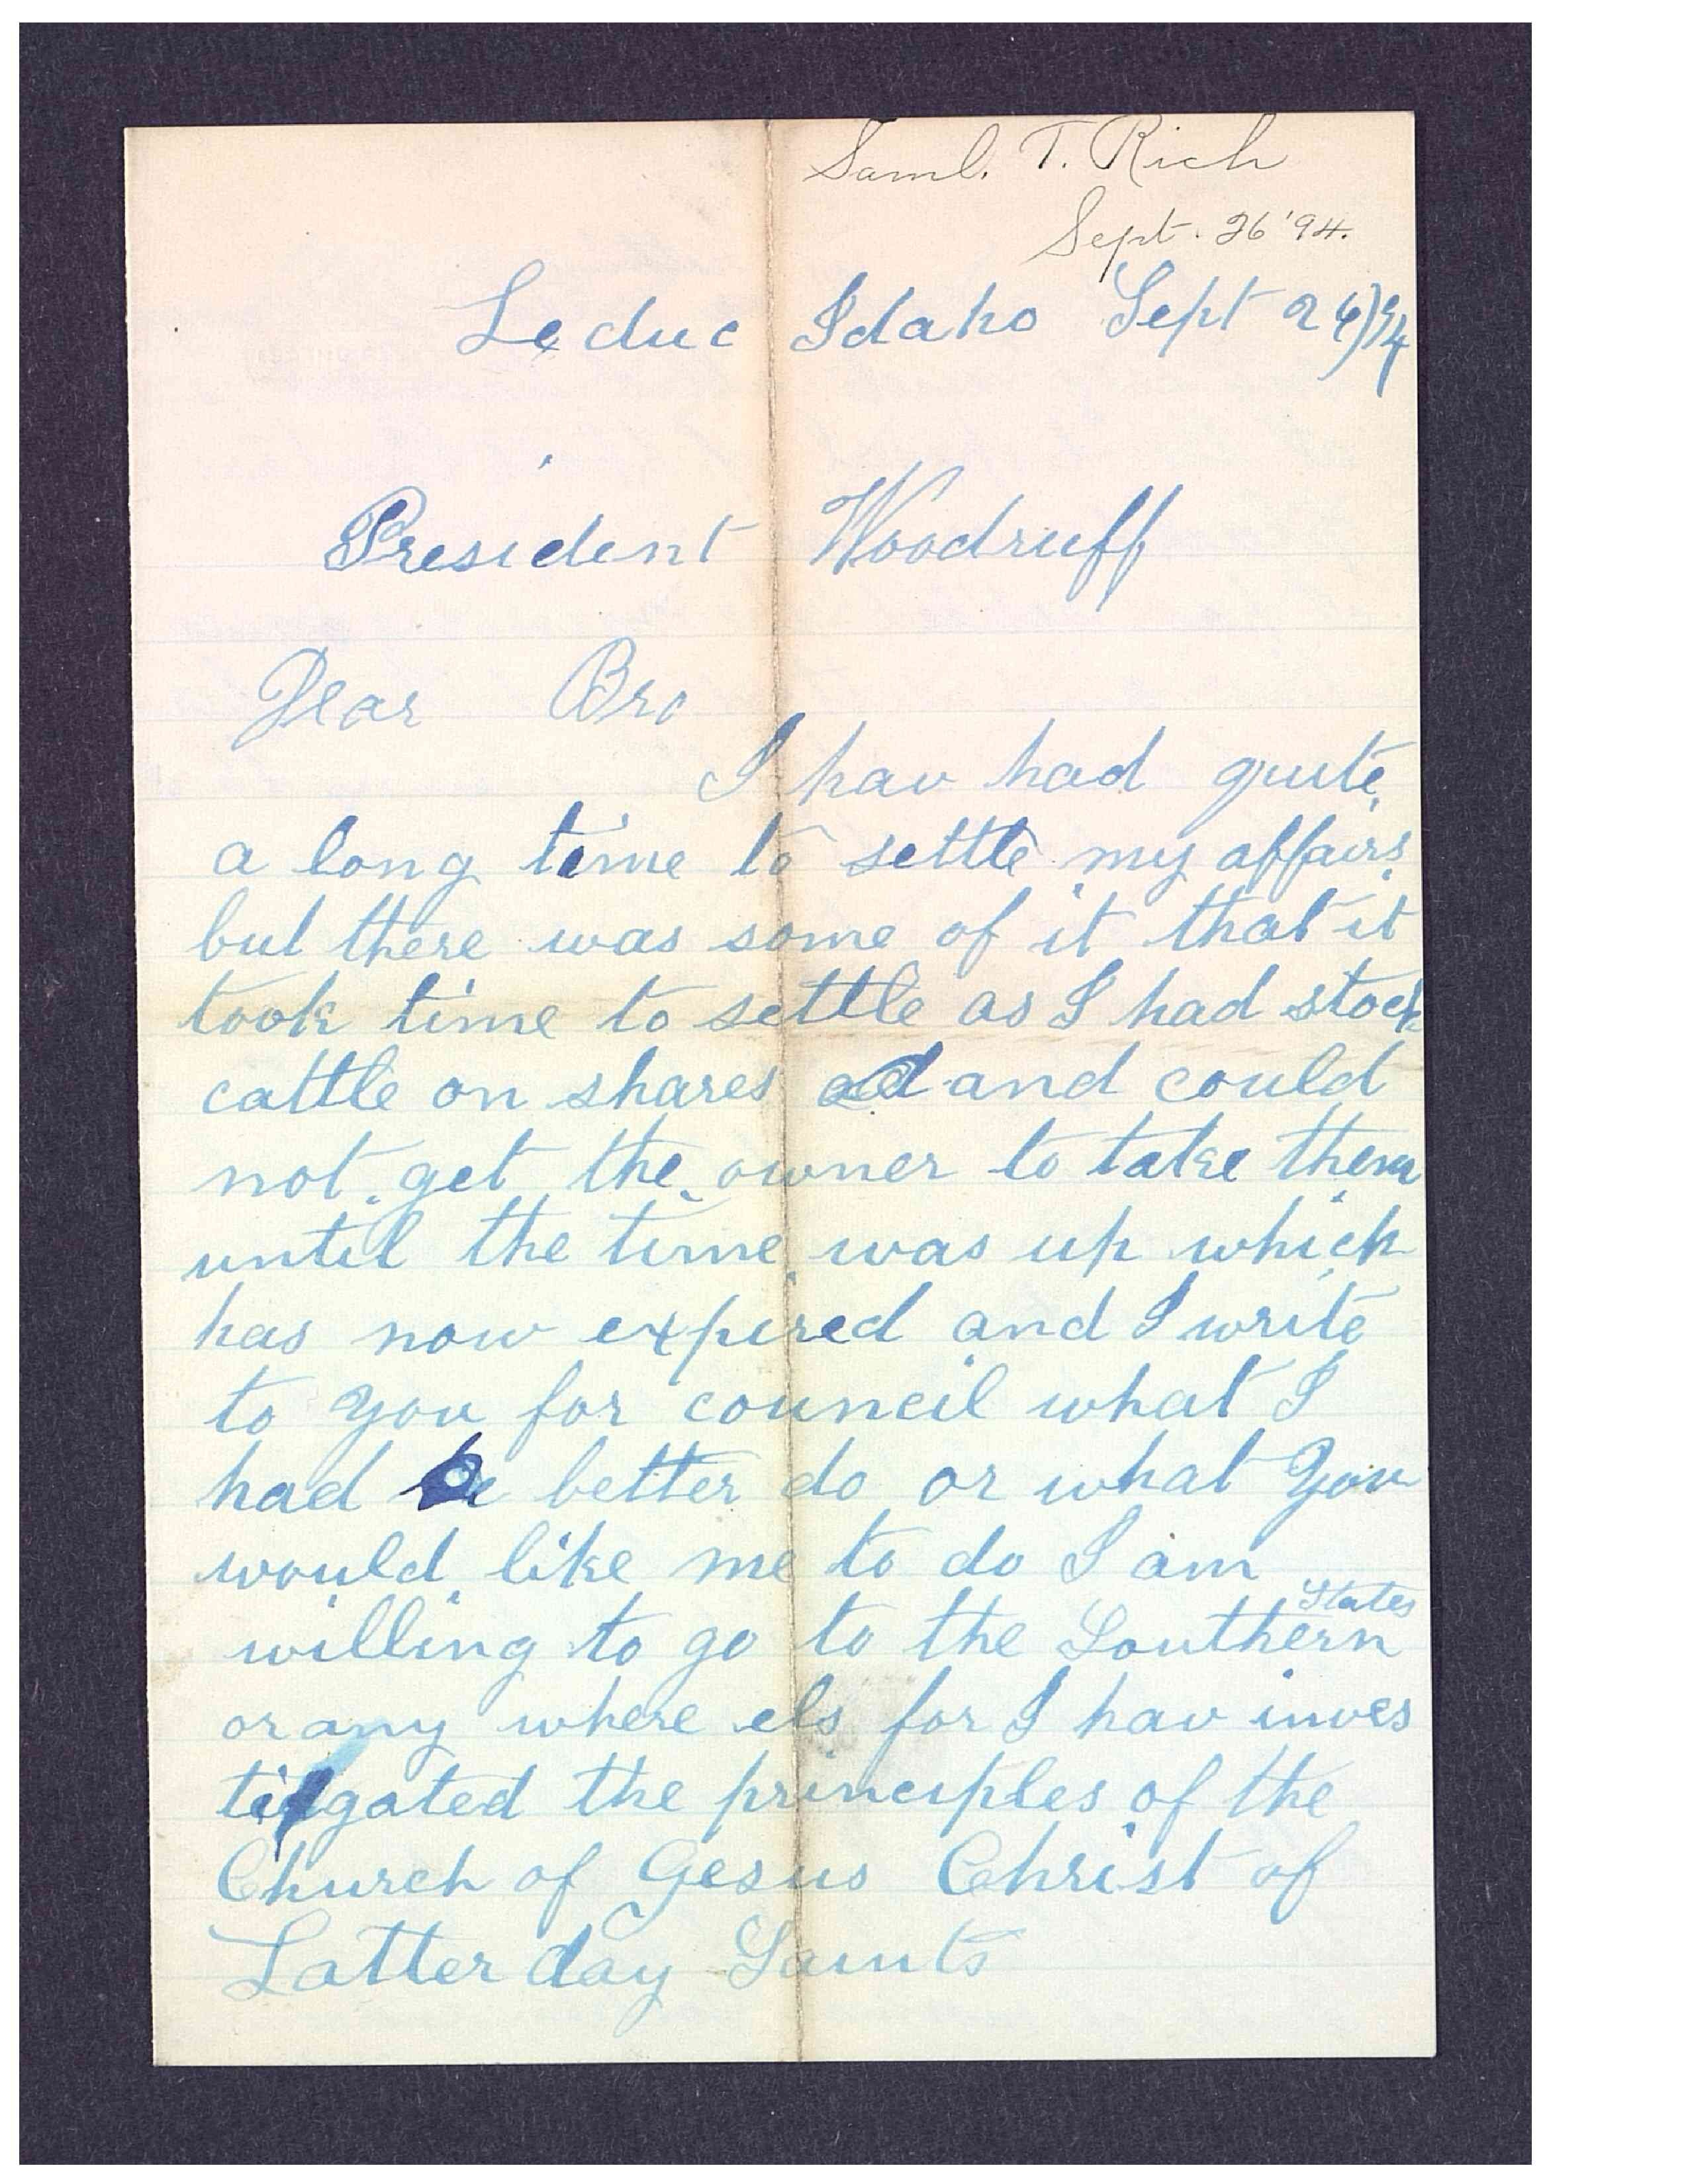 Saml. T. Rich
Sept. 26 '94.
Leduc Idaho Sept 26/94
President Woodruff
Dear Bro
I hav had quite
a long time to settle my affairs
but there was some of it that it
took time to settle as I had stock
cattle on shares and could
not get the owner to take them
until the time was up which
has now expired and I write
to you for council what I
had better do or what you
would like me to do I am
willing to go to the Southern States
or any where els for I hav inves
tigated the principles of the
Church of Gesus Christ of
Latter day Saints